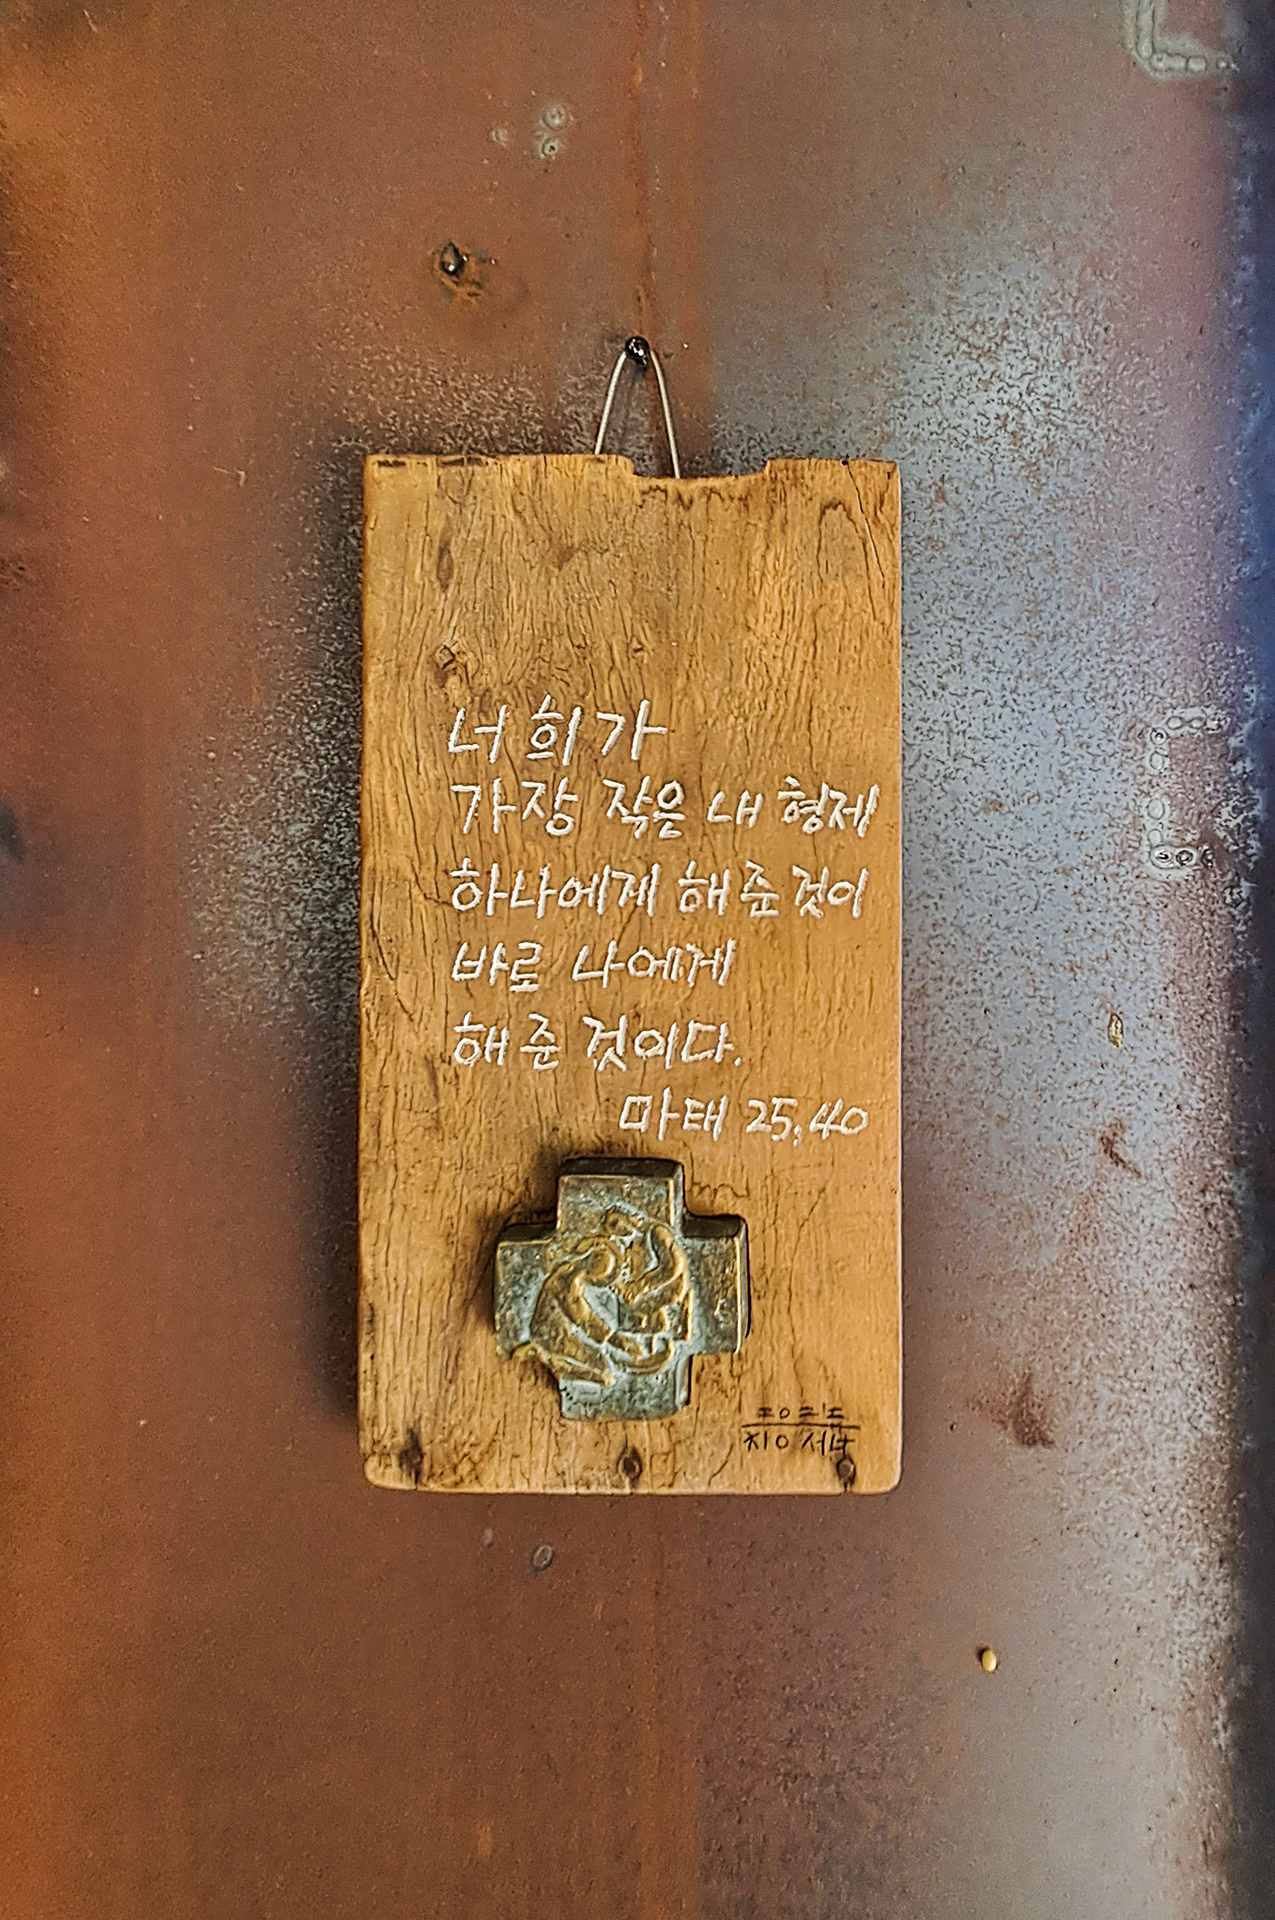 너희가
가장 작은 내 형제
하나에게 해준 것이
바로 나에게
해준 것이다.
마태 25,40